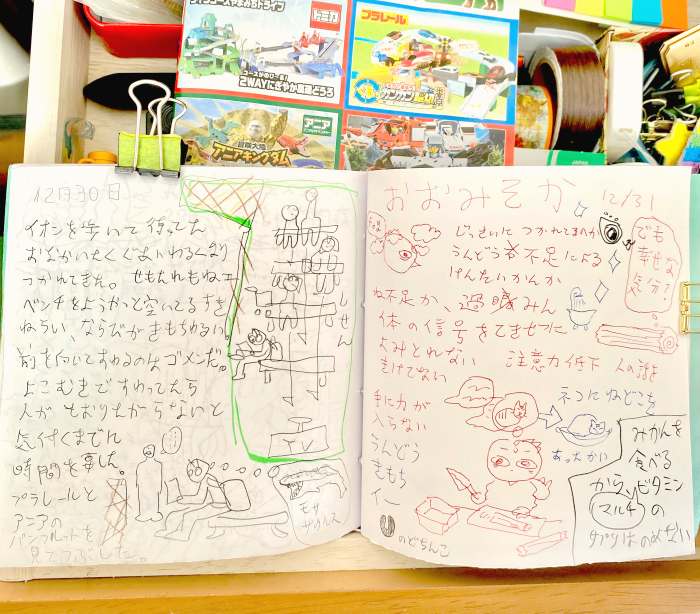 トミカ
2WAYにぎやか高速どうろ
プラレール
アニア
冒険大陸
アニアキングダム
12月30日
イオンを歩いて待ってた
つかれてきた。せもたれもねェ
ベンチをようやっと空いてるすき
ねらい、ならびがきもちわるい。
前を向いてすわるのはゴメンだ。
よこむきですわってたら
人がとおりたがらないと
気付くまでに
時間を要した。
プラレールと
アニアの
パンフレットを
見てつぶした。
しせん
TV
モササウルス
おおみそか
12/31
じっさいに つかれてるのか
うんどう不足による
けんたいかんか
ね不足か、過眠みん
体の信号をてきせつに
よみとれない
注意力低下
人の話を
きけてない
でも
幸せな
気分?
手に力が
入らない
うんどう
きもち
イー
のどちんこ
ネコにねどこを
あったかい
みかんを
食べる
から、ビタミン
(マルチ)の
サプリはのめない